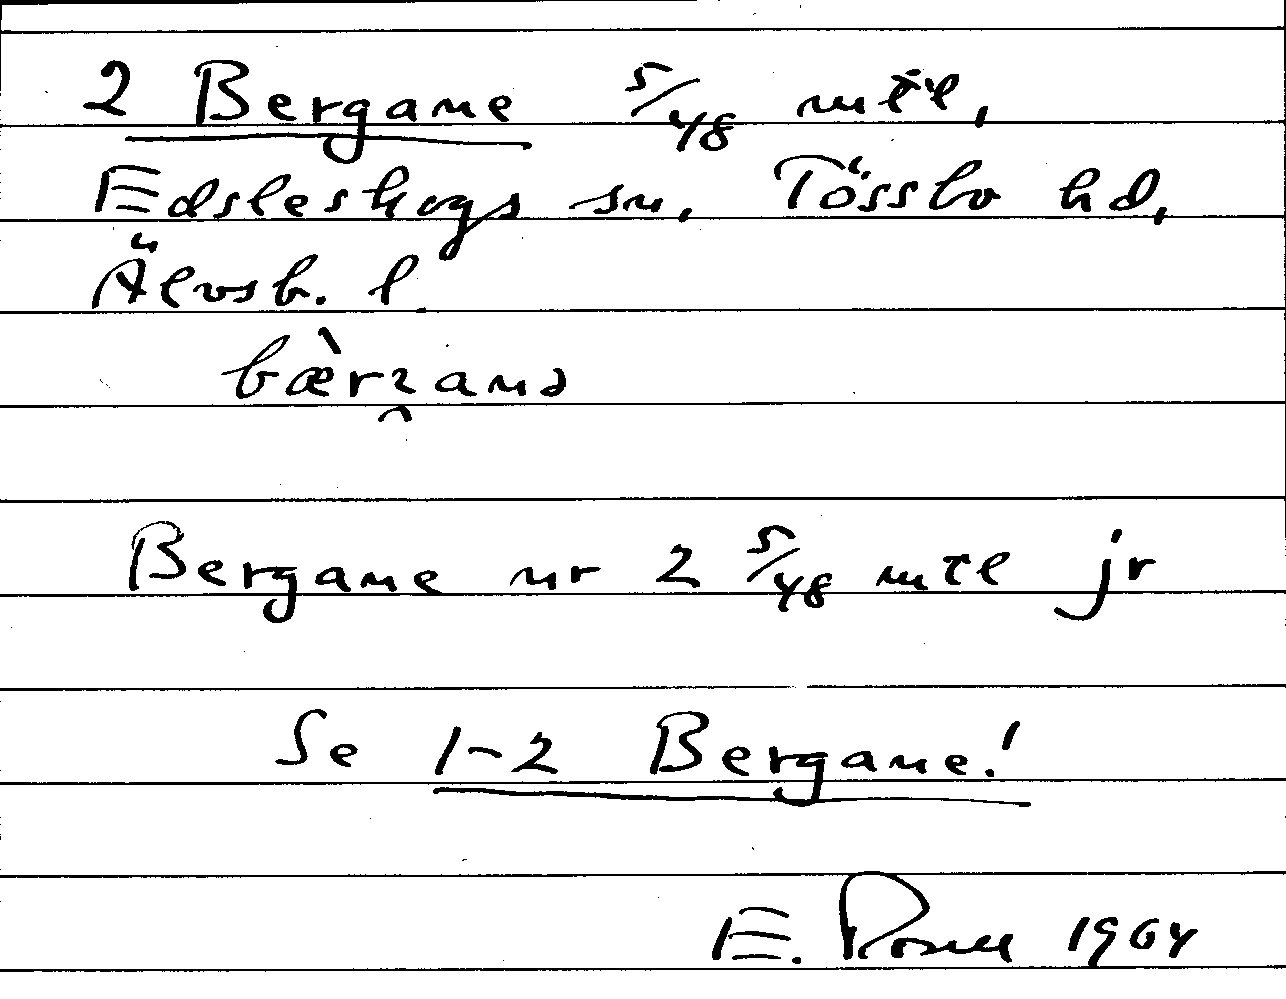 2 Bergane 5/48 mtl,
Edsleskogs sn, Tössbo hd,
Älvsb. l.
Bergane nr 2 5/48 mtl jr
Se 1-2 Bergane!
E. 1964